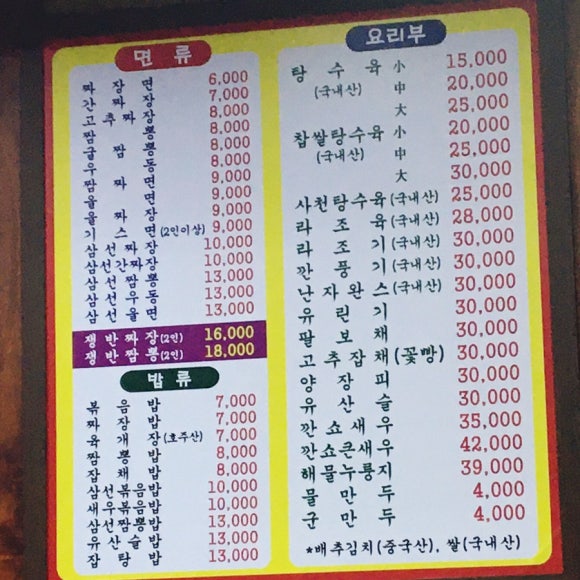 면 류
짜 장 면 6,000
간 짜 장 7,000
고 추 짜 장 8,000
짬 뽕 8,000
굴 짬 뽕 8,000
우 동 8,000
짬 짜 면 9,000
울 면 9,000
울 짜 장 9,000
기 스 면 (2인이상) 9,000
삼 선 짜 장 10,000
삼선간짜장 10,000
삼 선 짬 뽕 13,000
삼 선 우 동 13,000
삼 선 울 면 13,000
쟁 반 짜 장 (2인) 16,000
쟁 반 짬 뽕 (2인) 18,000
밥 류
볶 음 밥 7,000
짜 장 밥 7,000
육 개 장 (호주산) 7,000
짬 뽕 밥 8,000
잡 채 밥 8,000
삼선볶음밥 10,000
새우볶음밥 10,000
삼선짬뽕밥 13,000
유 산 슬 밥 13,000
잡 탕 밥 13,000
요리부
탕 수 육 小 15,000
(국내산) 中 20,000
大 25,000
찹쌀탕수육 小 20,000
(국내산) 中 25,000
大 30,000
사천탕수육 (국내산) 25,000
라 조 육 (국내산) 28,000
라 조 기 (국내산) 30,000
깐 풍 기 (국내산) 30,000
난 자 완 스 (국내산) 30,000
유 린 기 30,000
팔 보 채 30,000
고 추 잡 채 (꽃빵) 30,000
양 장 피 30,000
유 산 슬 30,000
깐 쇼 새 우 35,000
깐쇼큰새우 42,000
해물누룽지 39,000
물 만 두 4,000
군 만 두 4,000
*배추김치(중국산), 쌀(국내산)